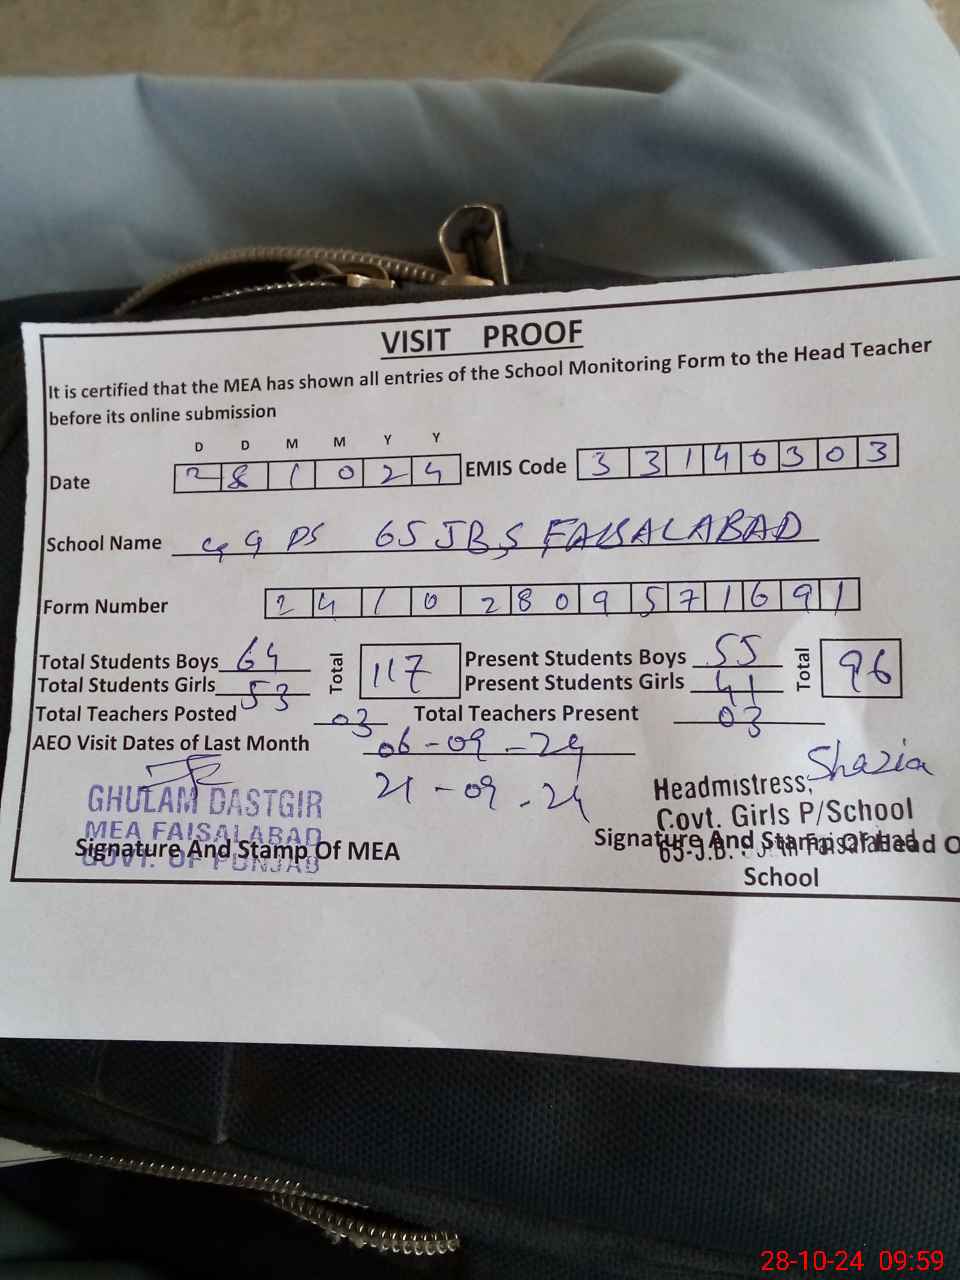 VISIT PROOF
It is certified that the MEA has shown all entries of the School Monitoring Form to the Head Teacher
before its online submission
D D M M Y Y
Date 2 8 1 0 2 4 EMIS Code 3 3 1 4 0 3 0 3
School Name GGPS 65 JBS FAISALABAD
Form Number 2 4 1 0 2 8 0 9 5 7 1 6 9 1
Total Students Boys 64 Total 117 Present Students Boys 55 Total 96
Total Students Girls 53 Present Students Girls 41
Total Teachers Posted 03 Total Teachers Present 03
AEO Visit Dates of Last Month 06-09-24
21-09-24
Shazia
GHULAM DASTGIR
MEA FAISALABAD
GOVT. OF PUNJAB
Signature And Stamp Of MEA
Headmistress,
Govt. Girls P/School
65-J.B. Faisalabad
Signature And Stamp Of Head O
School
28-10-24 09:59